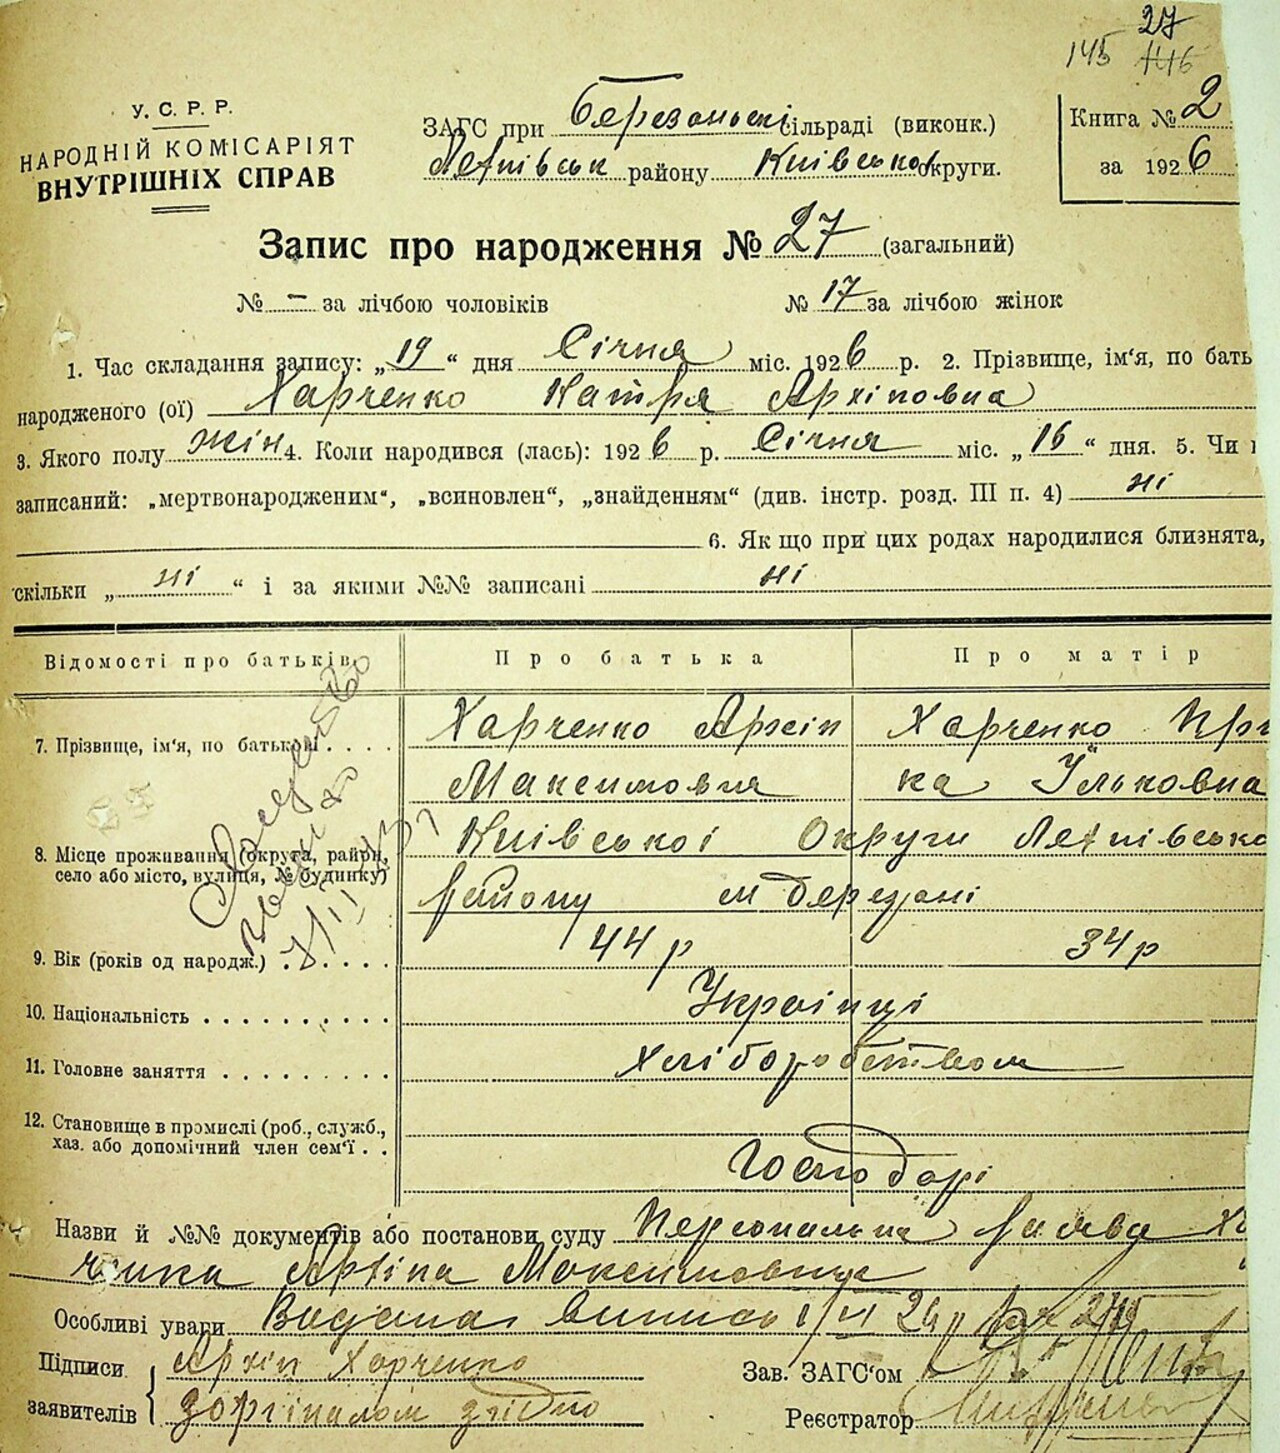 27
145 146
У. С. Р. Р.
НАРОДНІЙ КОМІСАРІЯТ
ВНУТРІШНІХ СПРАВ
ЗАГС при Березанські сільраді (виконк.)
району Київської округи.
Книга № 2
за 1926
Запис про народження № 27 (загальний)
№ – за лічбою чоловіків № 17 за лічбою жінок
1. Час складання запису: „19“ дня Січня міс. 1926 р. 2. Прізвище, ім‘я, по бать
народженого (ої) Харченко Катря Архіповна
3. Якого полу жін 4. Коли народився (лась): 1926 р. Січня міс. „16“ дня. 5. Чи
записаний: „мертвонародженим“, „всиновлен“, „знайденням“ (див. інстр. розд. III п. 4) ні
6. Як що при цих родах народилися близнята,
скільки „ні“ і за якими №№ записані ні
Відомості про батьків Про батька Про матір
7. Прізвище, ім‘я, по батькові . . . . Харченко Архіп Харченко
Максимович ка Ільковна
8. Місце проживання (округа, район, село або місто, вулиця, № будинку) Київської Округи
району м Березані
9. Вік (років од народж.) . . . . . 44 р 34 р
10. Національність . . . . . . . . . . Українці
11. Головне заняття . . . . . . . . . Хліборобством
12. Становище в промислі (роб., служб.,
хаз. або допомічний член сем‘ї . . Господарі
Назви й №№ документів або постанови суду Персональна заява Хар
ченка Архіпа Максимовича
Особливі уваги Видана
Підписи Архіп Харченко Зав. ЗАГС‘ом
заявителів З оргіналом згідно Реєстратор